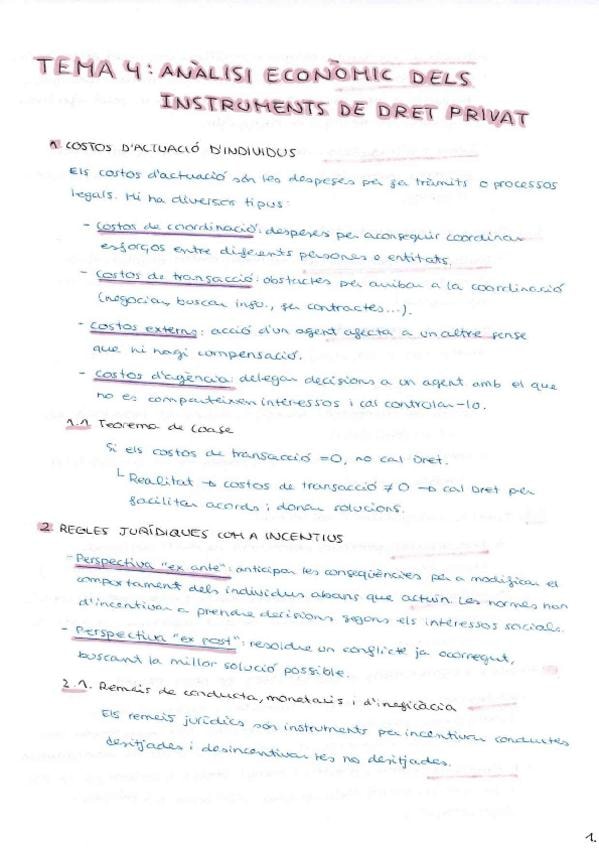 TEMA 4: ANÀLISI ECONÒMIC DELS
INSTRUMENTS DE DRET PRIVAT
1 COSTOS D'ACTUACIÓ D'INDIVIDUS
Els costos d'actuació són les despeses per fer tràmits o processos
legals. Hi ha diversos tipus:
- Costos de coordinació: despeses per aconseguir coordinar
esforços entre diferents persones o entitats.
- Costos de transacció: obstacles per arribar a la coordinació
(negociar, buscar info., fer contractes...).
- Costos externs: acció d'un agent afecta a un altre sense
que hi hagi compensació.
- Costos d'agència: delegar decisions a un agent amb el que
no es comparteixen interessos i cal controlar-lo.
1.1 Teorema de Coase
Si els costos de transacció =0, no cal Dret.
└ Realitat → costos de transacció ≠ 0 → cal Dret per
facilitar acords i donar solucions.
2 REGLES JURÍDIQUES COM A INCENTIUS
- Perspectiva "ex ante": anticipar les conseqüències per a modificar el
comportament dels individus abans que actuïn. Les normes han
d'incentivar a prendre decisions segons els interessos socials.
- Perspectiva "ex post": resoldre un conflicte ja ocorregut,
buscant la millor solució possible.
2.1. Remeis de conducta, monetaris i d'ineficàcia
Els remeis jurídics són instruments per incentivar conductes
desitjades i desincentivar les no desitjades.
1.